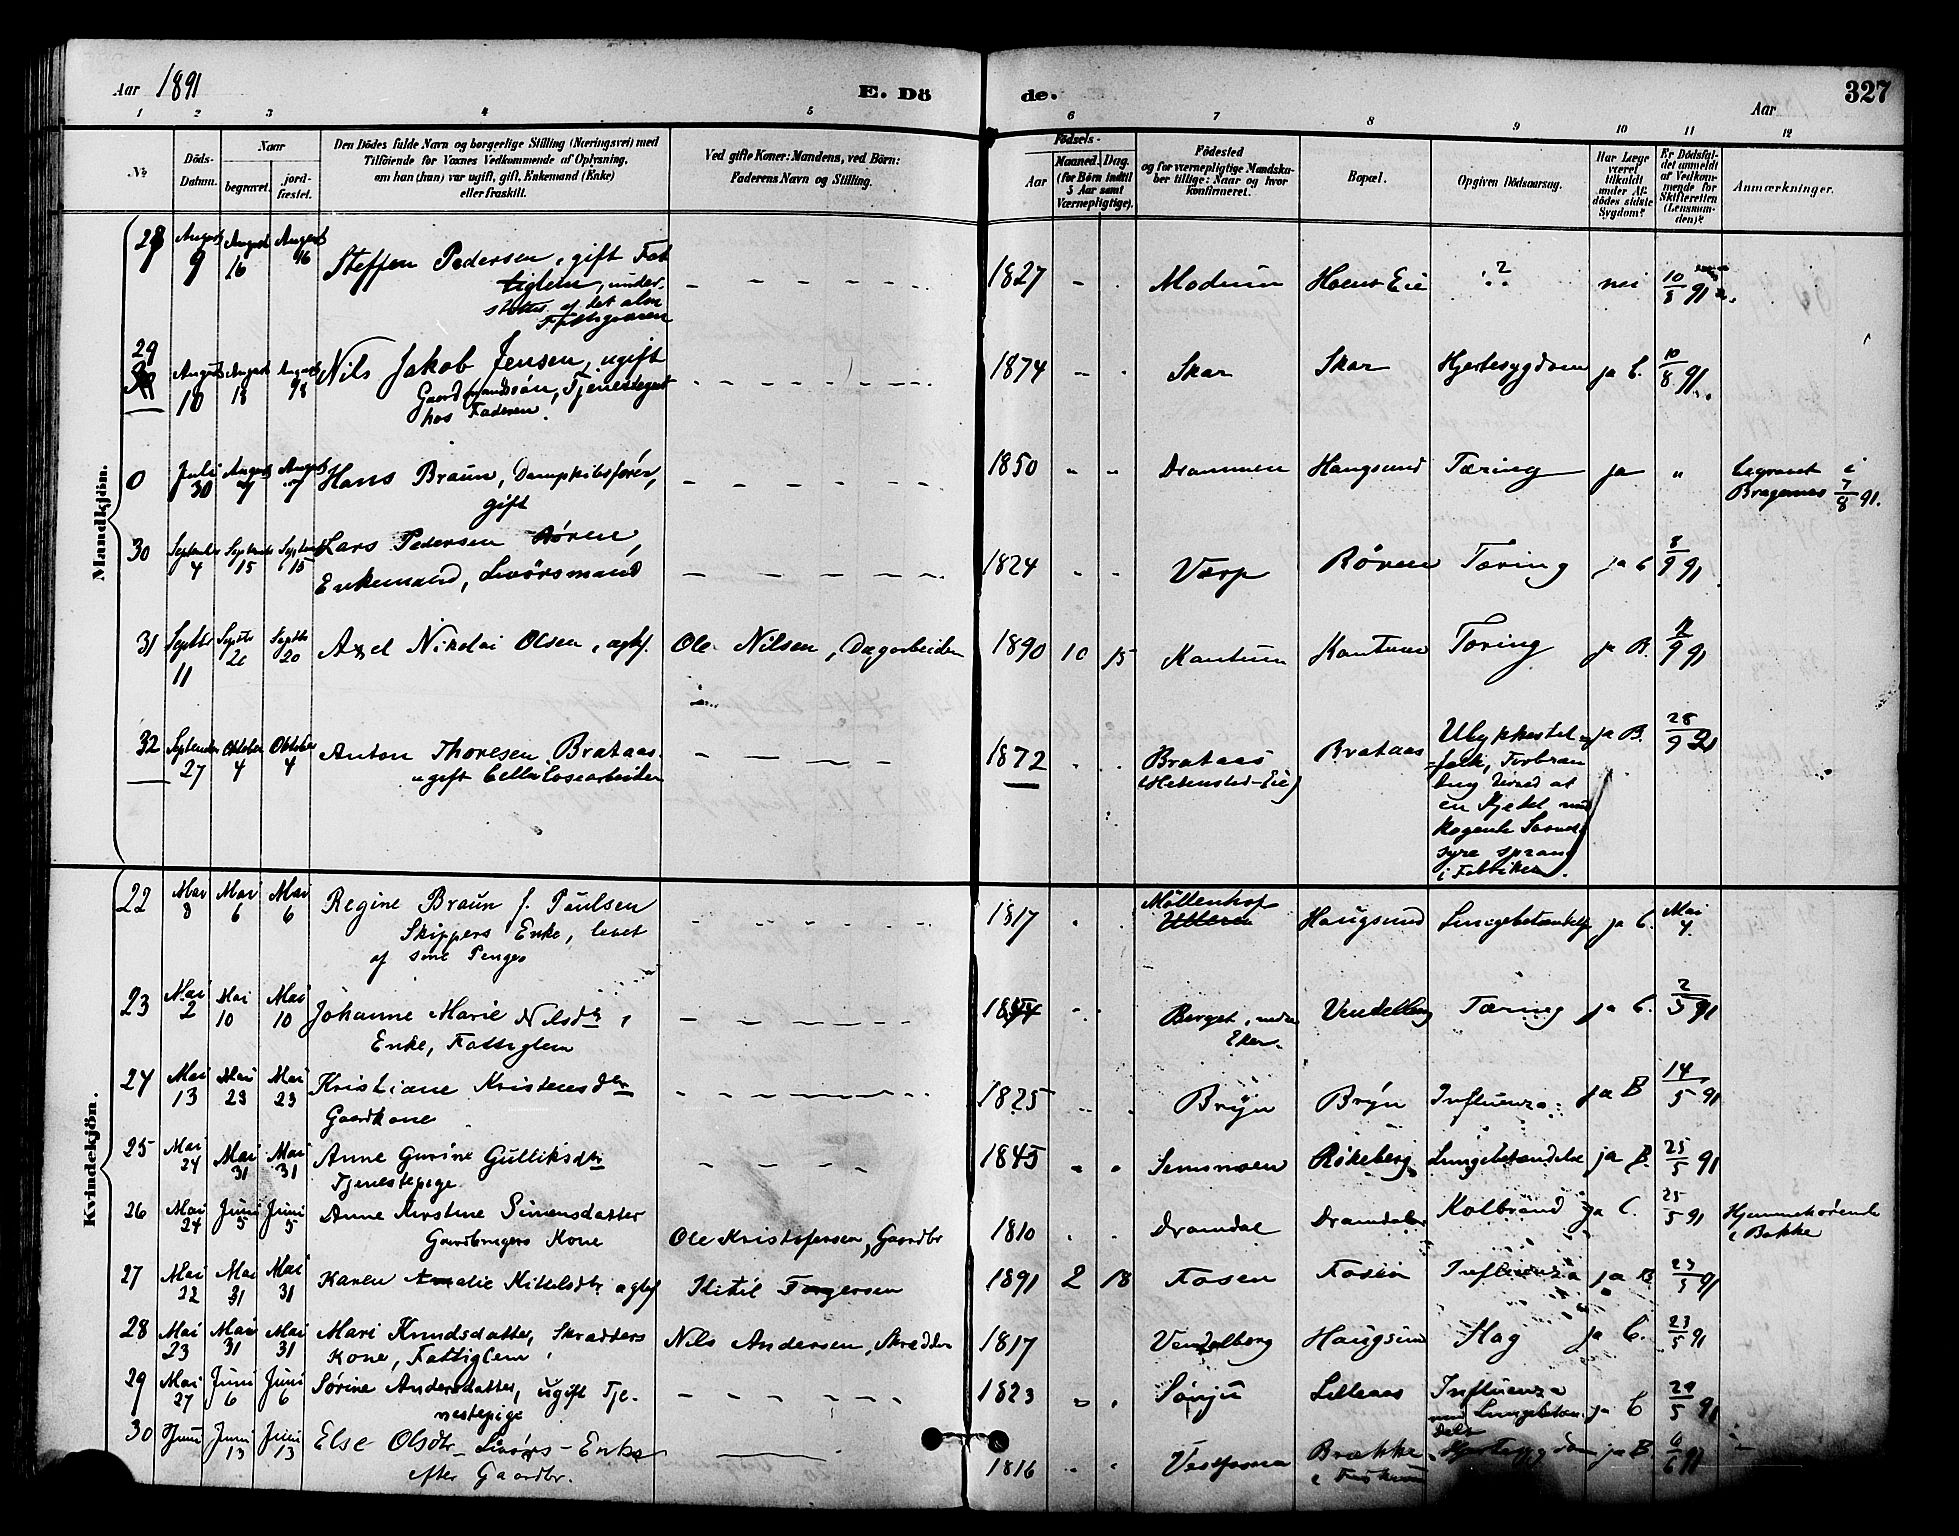 Aar 1891
E. Dö
de.
Aar
327
1 2 3 4 5 6 7 8 9 10 11 12
No
Döds-
Datum.
Naar
begravet.
jord-
fæstet.
Den Dödes fulde Navn og borgerlige Stilling (Næringsvei) med
Tilföiende for Voxnes Vedkommende af Oplysning,
om han (hun) var ugift, gift, Enkemand (Enke)
eller fraskilt.
Ved gifte Koner: Mandens, ved Börn:
Faderens Navn og Stilling.
Födsels-
Aar
Maaned. Dag.
(for Börn indtil
5 Aar samt
Værnepligtige).
Födested
og for værnepligtige Mandska-
ber tillige: Naar og hvor
konfirmeret.
Bopæl.
Opgiven Dödsaarsag.
Har Læge
været
tilkaldt
under Af-
dödes sidste
Sygdom?
Er Dödsfal-
det anmeldt
af Vedkom-
mende for
Skifteretten
(Lensman-
den)?
Anmærkninger.
Mandkjön.
28 August 9 August 16 August 16 Steffen Pedersen, gift Fat
tiglem, under-
støttes af det alm
Fattigvæsen
1827 Modum Hoens Eie ? nei 10/8 91
29 August 10 August 18 Nils Jakob Jensen, ugift
Gaardmandssøn, Tjenestegut
hos Faderen.
1874 Skar Skar Hjertesygdom ja C. 10/8 91
0 Juli 30 August 7 August 7 Hans Braun, Dampskibsfører,
gift
1850 Drammen Haugsund Tæring ja " begravet i
Bragernes 7/8 91.
30 Septembr 4 Septembr 15 Septembr 15 Lars Pedersen Røren,
Enkemand, Livørsmand
1824 Værp Røren Tæring ja C 8/9 91
31 Septbr 11 Septbr 20 Septbr 20 Axel Nikolai Olsen, ægtef. Ole Nilsen, Dagarbeider 1890 10 15 Kantum Kantum Tæring ja B. 9 91
32 September 27 Oktober 4 Oktober 4 Anton Thoresen Brataas
ugift Cellulosearbeider
1872 Brataas
(Hebensted-Eie)
Brataas Ulykkestil
fælde, Forbræn
ding derved at
en Kjedel med
kogende Svovel
syre sprang
i Fabriken.
ja B. 28/9 91
Kvindekjön.
22 Mai 3 Mai 6 Mai 6 Regine Braun f. Paulsen
Skippers Enke, levet
af sine Penge
1817 Møllenhof Haugsund Lungebetændelse ja C. Mai 4.
23 Mai 2 Mai 10 Mai 10 Johanne Marie Nilsdtr,
Enke, Fattiglem
Berget, nedre
Eker.
Vendelborg Tæring ja C. 2/5 91
24 Mai 13 Mai 23 Mai 23 Kristiane Kristensdtr
Gaardkone
1825 Bryn Bryn Influenza ja B 14/5 91
25 Mai 24 Mai 31 Mai 31 Anne Gurine Gulliksdtr
Tjenestepige
1845 Semsmoen Røkeberg Lungebetændelse ja B. 25/5 91
26 Mai 24 Juni 5 Juni 5 Anne Kirstine Simensdatter
Gaardbrugers Kone
Ole Kristofersen, Gaardbr 1810 Dramdal Dramdalen Kolbrand ja C. 25/5 91 Hjemmehørende
i Bakke
27 Mai 22 Mai 31 Mai 31 Karen Amalie Kittelsdtr ægtef Kitil Torgersen 1891 2 18 Fosen Fosen Influenza ja B. 23/5 91
28 Mai 23 Mai 31 Mai 31 Mari Knudsdatter, Skrædders
Kone, Fattiglem
Nils Andersen, Skrædder 1817 Vendelborg Haugsund Slag ja C. 23/5 91
29 Mai 27 Juni 6 Juni 6 Sørine Andersdatter, ugift Tje-
nestepige
1823 Sønju Lilleaas Influenza
med Lungebetæn
delse
ja C 29/5 91
30 Juni Juni 13 Juni 13 Else Olsdtr Livørs-Enke
efter Gaardbr.
1816 Brække Hjertesygdom ja B. 6/6 91